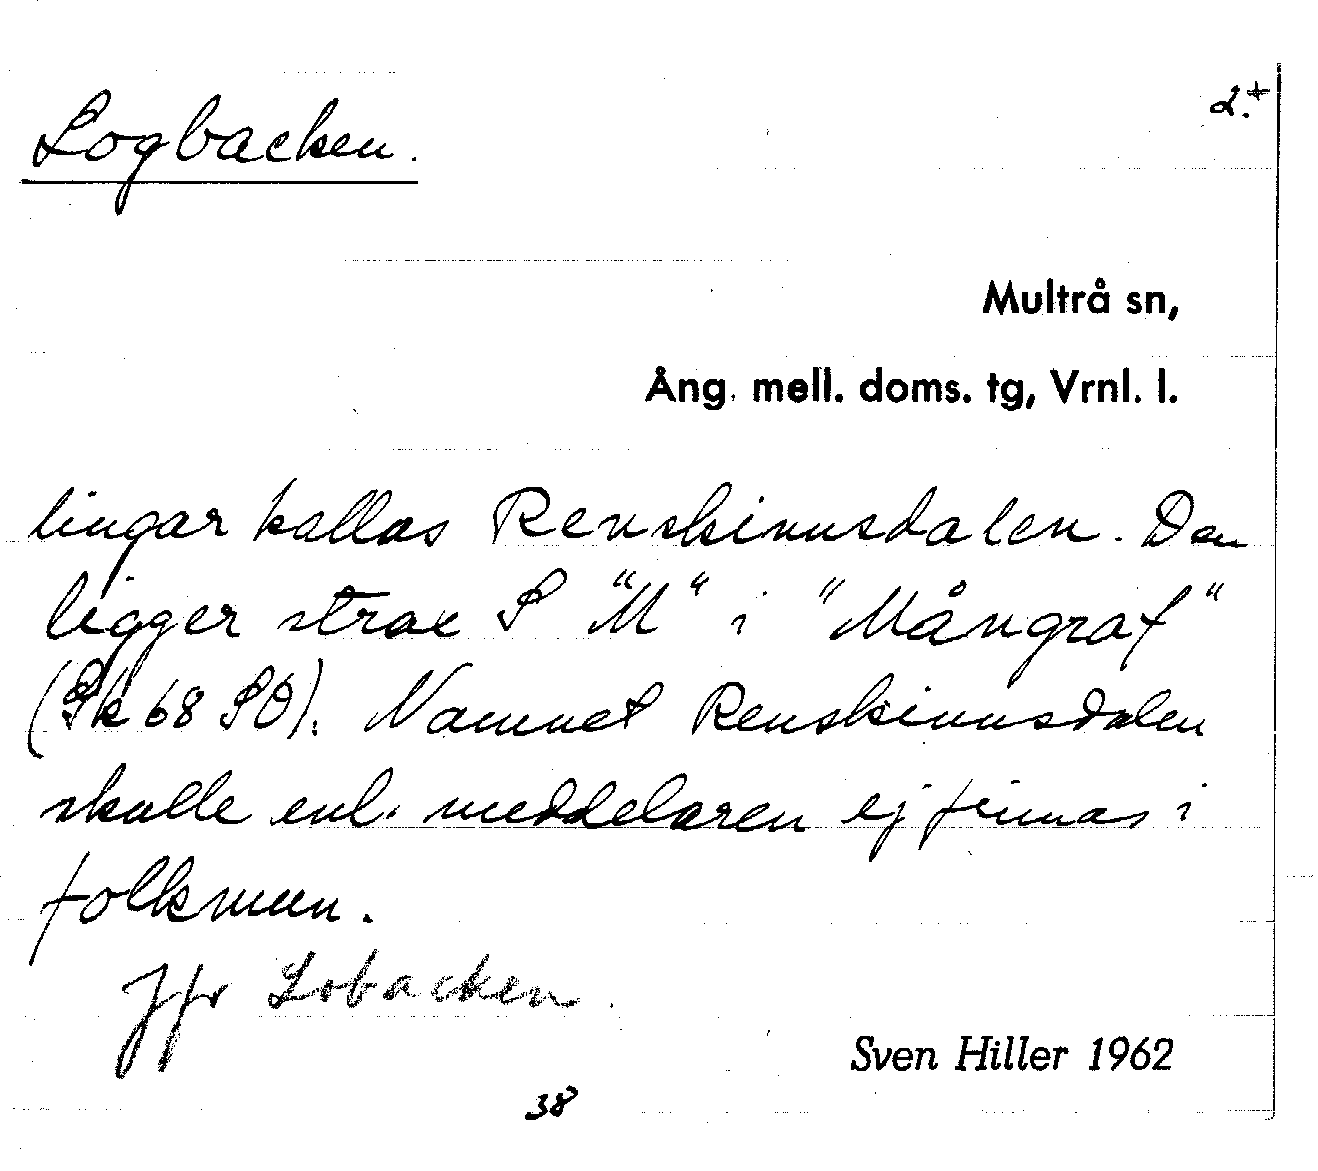 2.+
Logbacken.
Multrå sn,
Ång. mell. doms. tg, Vrnl. l.
lingar kallas Renskinnsdalen. Den
ligger strax S "M" i "Mångraf"
(Sk 68 SO). Namnet Renskinnsdalen
skulle enl. meddelaren ej finnas i
folkmun.
Jfr Lobacken.
Sven Hiller 1962
38